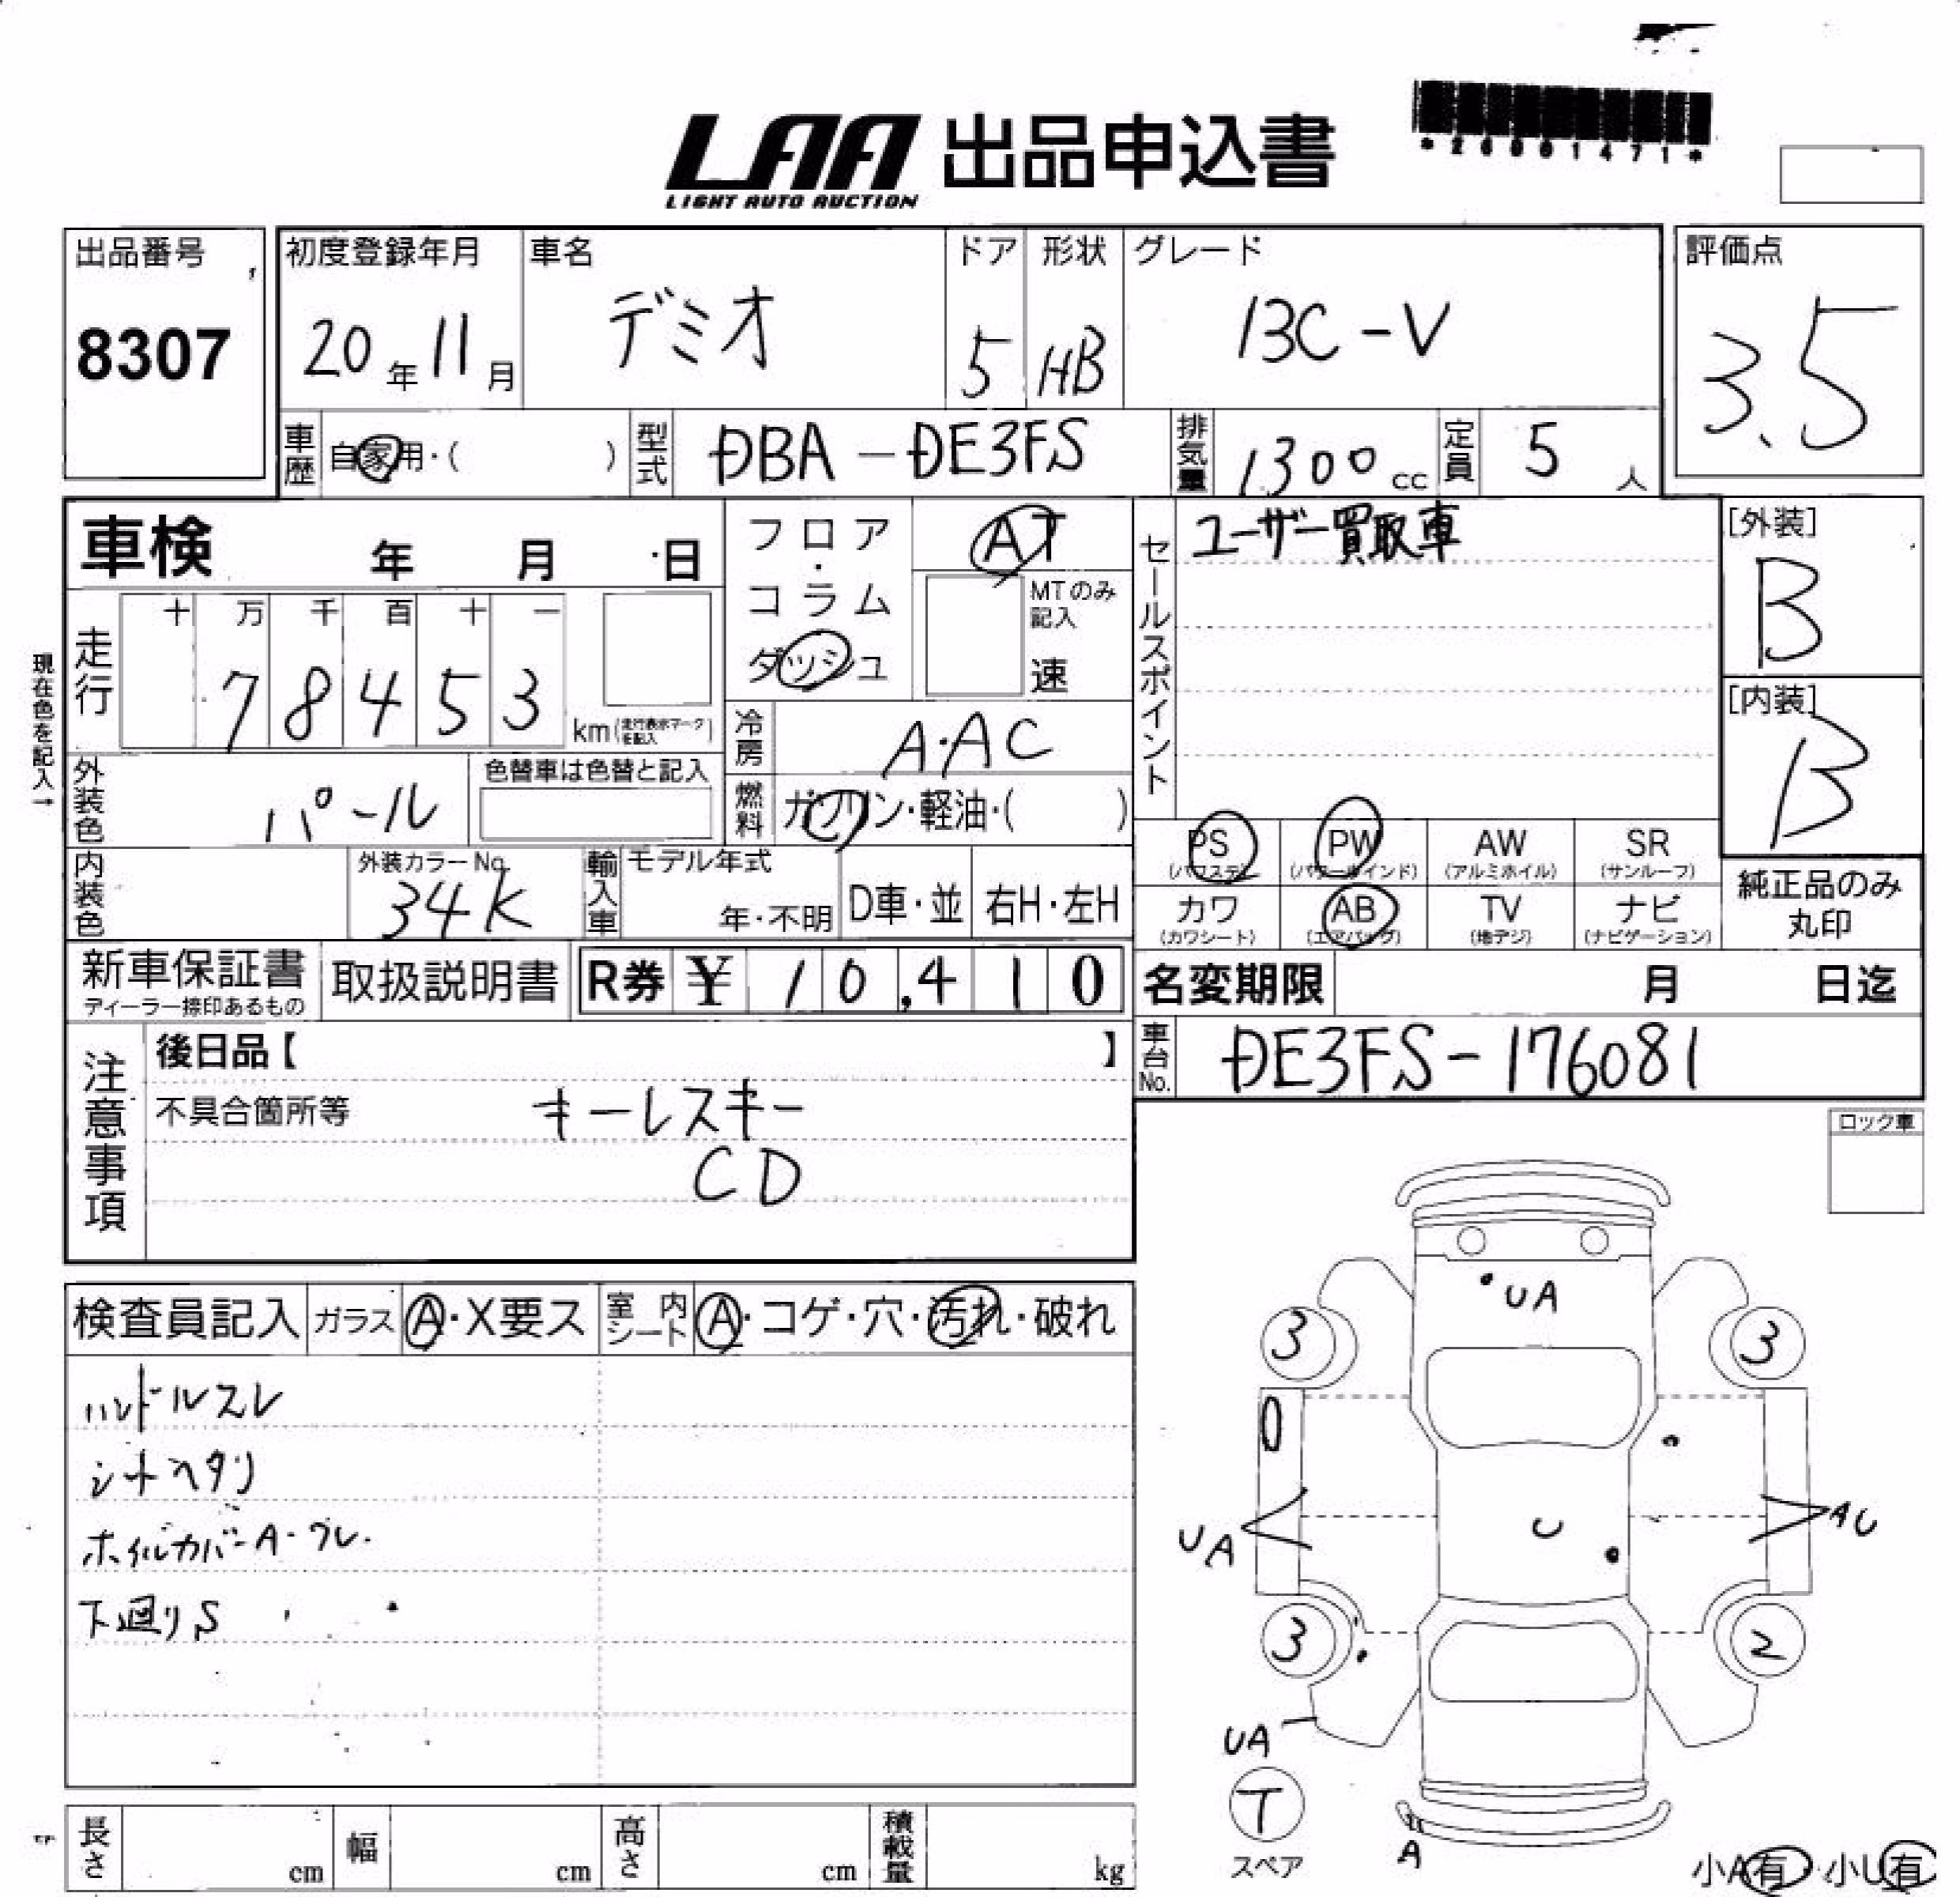 *26001471*
LAA 出品申込書
LIGHT AUTO AUCTION
出品番号
8307
初度登録年月
20年11月
車名
デミオ
ドア
5
形状
HB
グレード
13C-V
評価点
3.5
車歴
自家用・( )
型式
DBA-DE3FS
排気量
1300cc
定員
5人
車検 年 月 日
フロア・コラム
ダッシュ
AT
MTのみ記入
速
セールスポイント
ユーザー買取車
[外装]
B
[内装]
B
現在色を記入→
走行
十 万 千 百 十 一
78453
km(走行表示マークを記入)
冷房
A・AC
燃料
ガソリン・軽油・( )
外装色
パール
色替車は色替と記入
内装色
外装カラーNo.
34K
輸入車
モデル年式
年・不明
D車・並
右H・左H
PS
(パワステ)
PW
(パワーウインド)
AW
(アルミホイル)
SR
(サンルーフ)
カワ
(カワシート)
AB
(エアバッグ)
TV
(地デジ)
ナビ
(ナビゲーション)
純正品のみ
丸印
新車保証書
ディーラー捺印あるもの
取扱説明書
R券 ¥10,410
名変期限 月 日迄
車台No.
DE3FS-176081
注意事項
後日品【 】
不具合箇所等
キーレスキー
CD
ロック車
検査員記入
ガラス
A・X要ス
室内シート
A・コゲ・穴・汚れ・破れ
ハンドルスレ
シートヘタリ
ホイルカバーA・ワレ.
下廻りS
UA
3
3
UA
U
AU
3
2
UA
T
スペア
A
小A有・小U有
長さ
cm
幅
cm
高さ
cm
積載量
kg